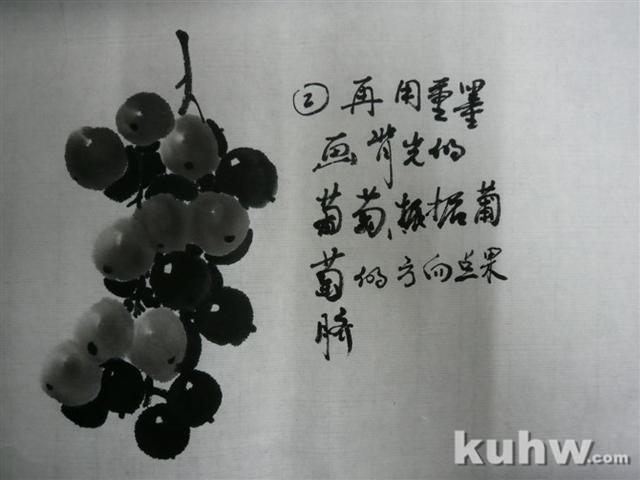 ②再用重墨
画背光的
葡萄、根据葡
萄的方向点果
脐
kuhw.com